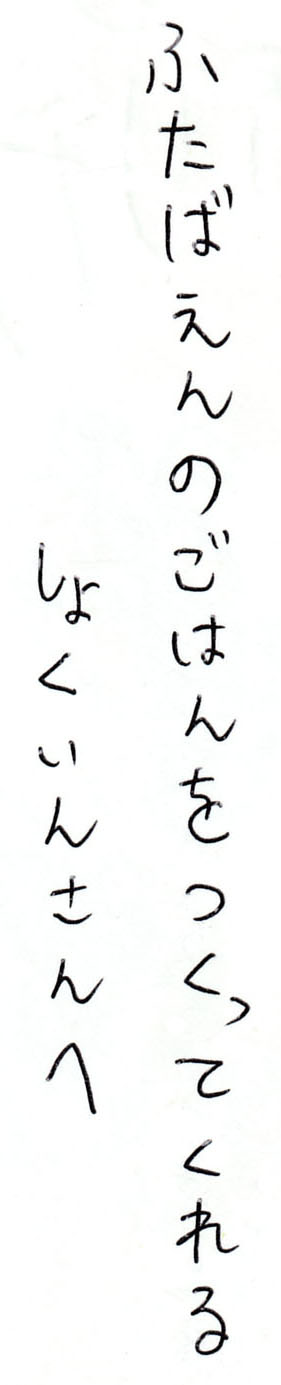 ふたばえんのごはんをつくってくれる
しょくいんさんへ